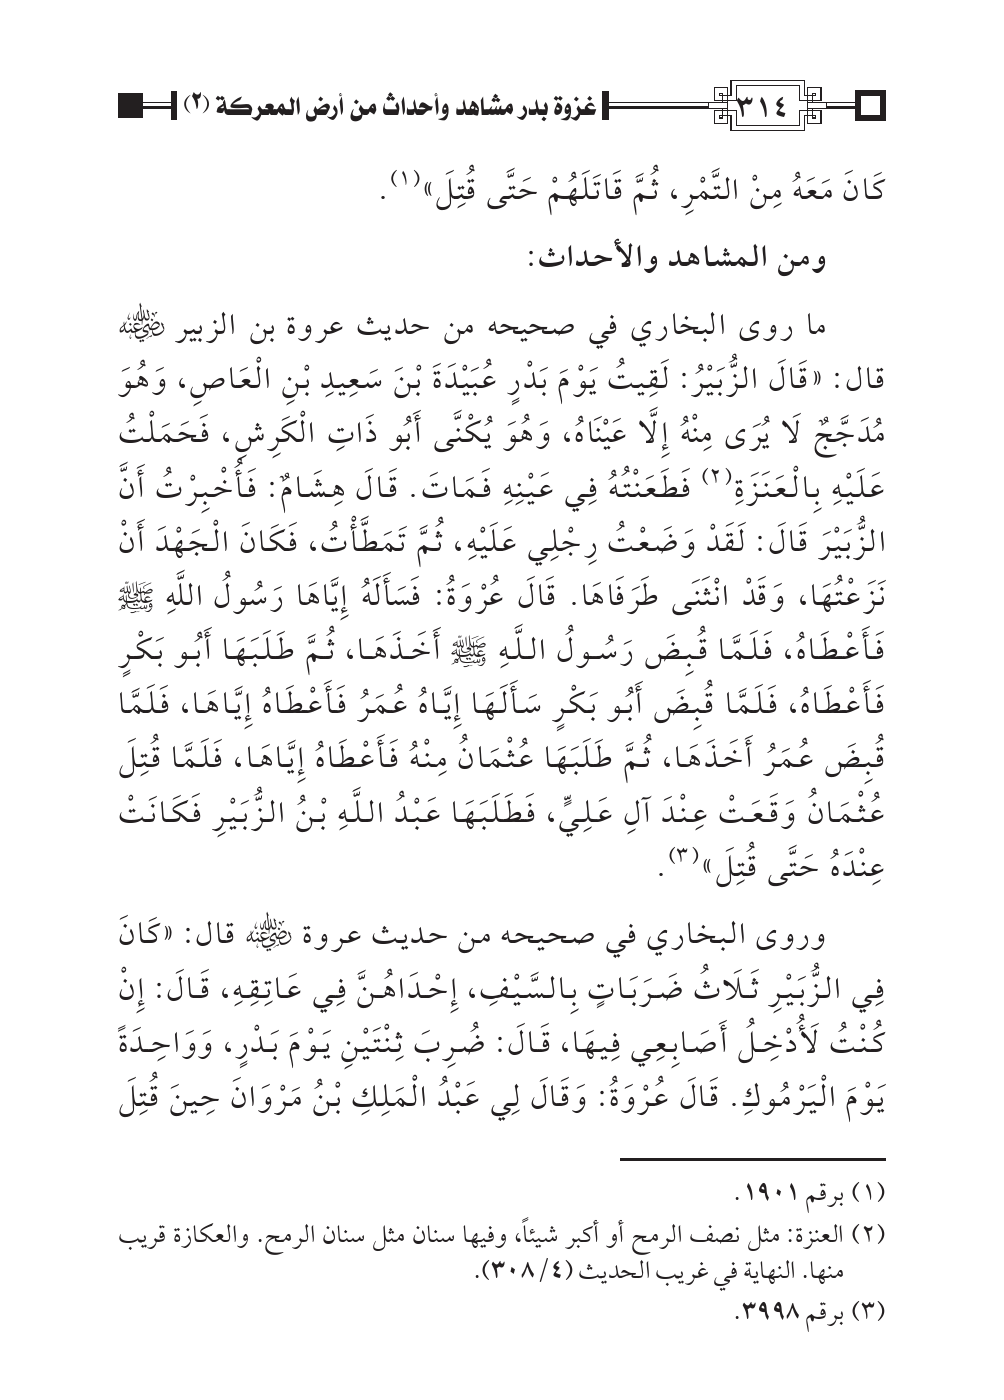 ٣١٤ غزوة بدر مشاهد وأحداث من أرض المعركة (٢)
كَانَ مَعَهُ مِنْ التَّمْرِ، ثُمَّ قَاتَلَهُمْ حَتَّى قُتِلَ»(١).
ومن المشاهد والأحداث:
ما روى البخاري في صحيحه من حديث عروة بن الزبير رضي الله عنه
قال: «قَالَ الزُّبَيْرُ: لَقِيتُ يَوْمَ بَدْرٍ عُبَيْدَةَ بْنَ سَعِيدِ بْنِ الْعَاصِ، وَهُوَ
مُدَجَّجٌ لَا يُرَى مِنْهُ إِلَّا عَيْنَاهُ، وَهُوَ يُكْنَّى أَبُو ذَاتِ الْكَرِشِ، فَحَمَلْتُ
عَلَيْهِ بِالْعَنَزَةِ(٢) فَطَعَنْتُهُ فِي عَيْنِهِ فَمَاتَ. قَالَ هِشَامٌ: فَأُخْبِرْتُ أَنَّ
الزُّبَيْرَ قَالَ: لَقَدْ وَضَعْتُ رِجْلِي عَلَيْهِ، ثُمَّ تَمَطَّأْتُ، فَكَانَ الْجَهْدَ أَنْ
نَزَعْتُهَا، وَقَدْ انْثَنَى طَرَفَاهَا. قَالَ عُرْوَةُ: فَسَأَلَهُ إِيَّاهَا رَسُولُ اللَّهِ ﷺ
فَأَعْطَاهُ، فَلَمَّا قُبِضَ رَسُولُ اللَّهِ ﷺ أَخَذَهَا، ثُمَّ طَلَبَهَا أَبُو بَكْرٍ
فَأَعْطَاهُ، فَلَمَّا قُبِضَ أَبُو بَكْرٍ سَأَلَهَا إِيَّاهُ عُمَرُ فَأَعْطَاهُ إِيَّاهَا، فَلَمَّا
قُبِضَ عُمَرُ أَخَذَهَا، ثُمَّ طَلَبَهَا عُثْمَانُ مِنْهُ فَأَعْطَاهُ إِيَّاهَا، فَلَمَّا قُتِلَ
عُثْمَانُ وَقَعَتْ عِنْدَ آلِ عَلِيٍّ، فَطَلَبَهَا عَبْدُ اللَّهِ بْنُ الزُّبَيْرِ فَكَانَتْ
عِنْدَهُ حَتَّى قُتِلَ»(٣).
وروى البخاري في صحيحه من حديث عروة رضي الله عنه قال: «كَانَ
فِي الزُّبَيْرِ ثَلَاثُ ضَرَبَاتٍ بِالسَّيْفِ، إِحْدَاهُنَّ فِي عَاتِقِهِ، قَالَ: إِنْ
كُنْتُ لَأُدْخِلُ أَصَابِعِي فِيهَا، قَالَ: ضُرِبَ ثِنْتَيْنِ يَوْمَ بَدْرٍ، وَوَاحِدَةً
يَوْمَ الْيَرْمُوكِ. قَالَ عُرْوَةُ: وَقَالَ لِي عَبْدُ الْمَلِكِ بْنُ مَرْوَانَ حِينَ قُتِلَ
(١) برقم ١٩٠١.
(٢) العنزة: مثل نصف الرمح أو أكبر شيئاً، وفيها سنان مثل سنان الرمح. والعكازة قريب
منها. النهاية في غريب الحديث (٣٠٨/٤).
(٣) برقم ٣٩٩٨.